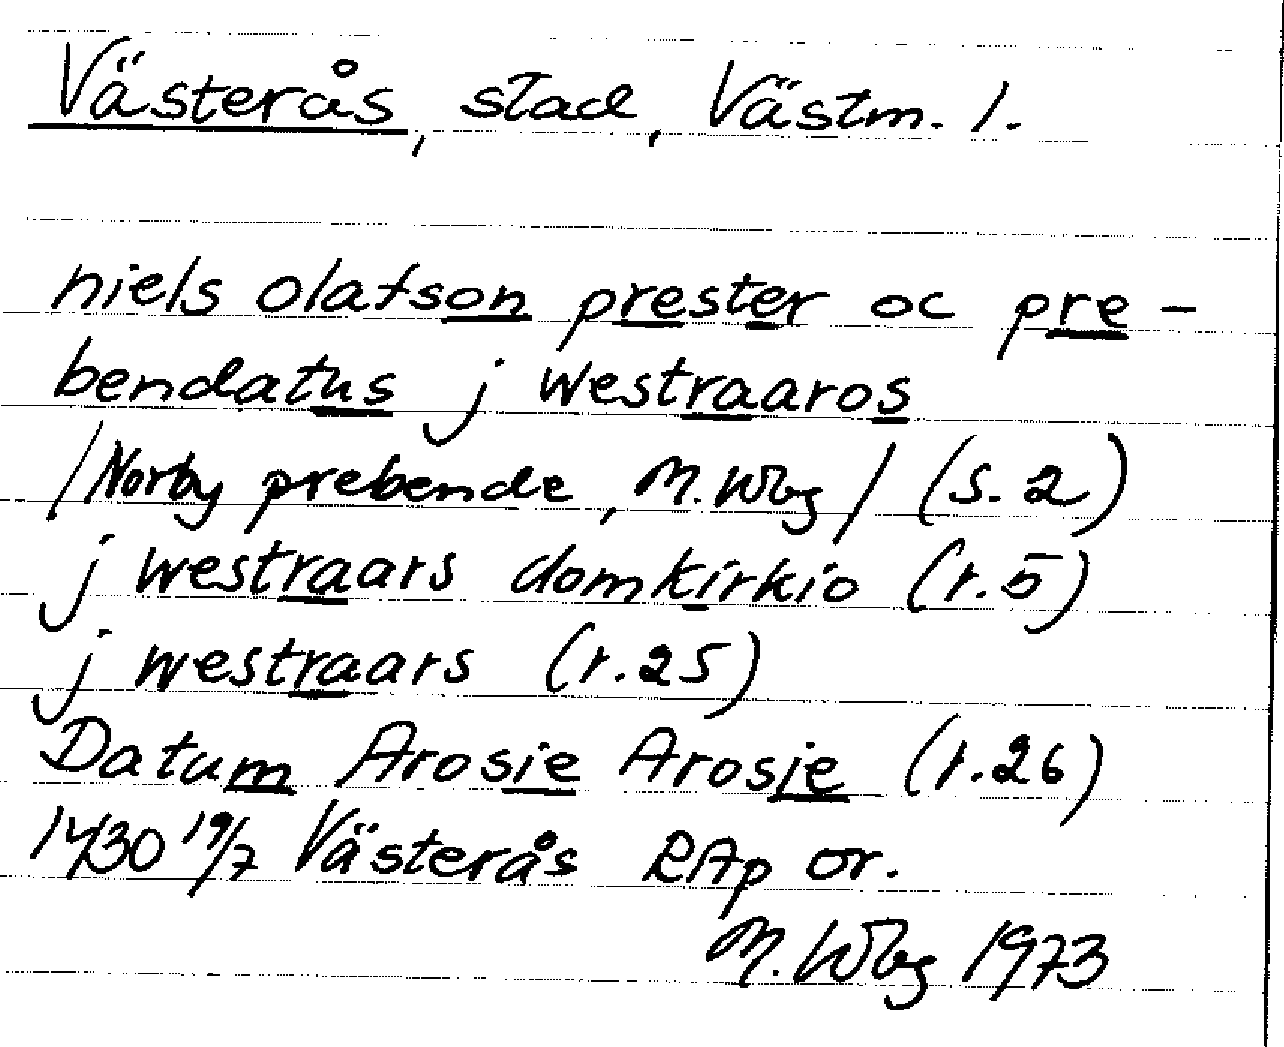 Västerås, stad, Västm. l.
niels olafson prester oc pre-
bendatus j westraaros
/Norby prebende, M. Wbg/ (s. 2)
j westraars domkirkio (r. 5)
j westraars (r. 25)
Datum Arosie Arosie (r. 26)
1430 19/7 Västerås RAp or.
M. Wbg 1973